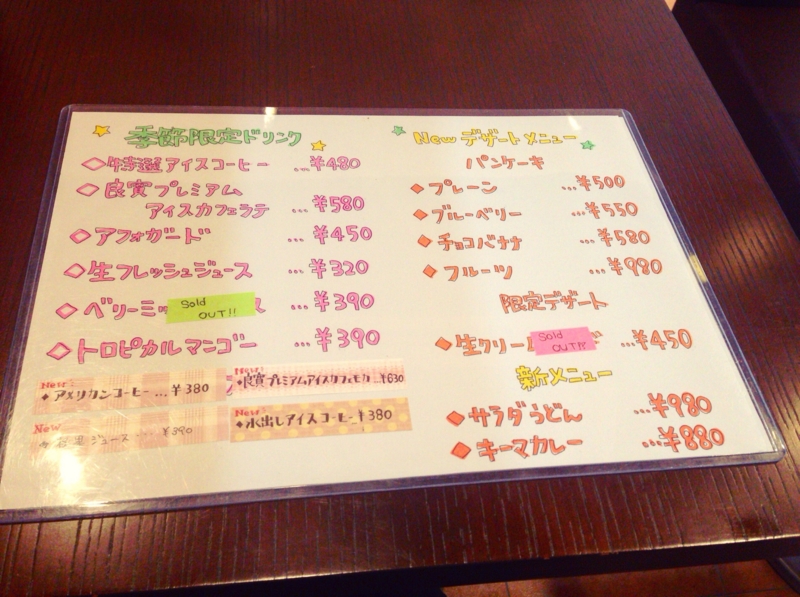 季節限定ドリンク
特選アイスコーヒー ...¥480
良寛プレミアム
アイスカフェラテ ...¥580
アフォガード ...¥450
生フレッシュジュース ...¥320
ベリーミッ Sold OUT!! ス ...¥390
トロピカルマンゴー ...¥390
New!
アメリカンコーヒー ... ¥380
New!
良寛プレミアムアイスカフェモカ ...¥630
New
ジュース ... ¥390
New!
水出しアイスコーヒー ...¥380
New デザートメニュー
パンケーキ
プレーン ...¥500
ブルーベリー ...¥550
チョコバナナ ...¥580
フルーツ ...¥980
限定デザート
生クリー Sold OUT!! ...¥450
新メニュー
サラダうどん ...¥980
キーマカレー ...¥880